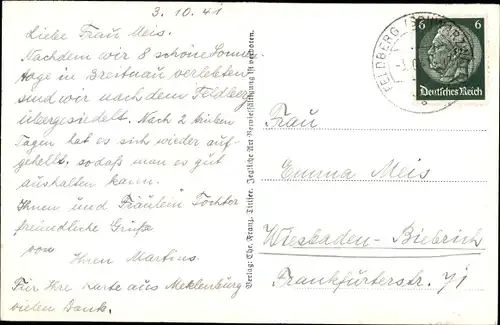 3. 10. 41
Liebe Frau Meis.
Nachdem wir 8 schöne Sonnen-
tage in Breitnau verlebten
sind wir nach dem Feldberg
übergesiedelt. Nach 2 trüben
Tagen hat es sich wieder auf-
gehellt, sodaß man es gut
aushalten kann.
Ihnen und Fräulein Tochter
freundliche Grüße
von
Ihren Martins.
Für Ihre Karte aus Meklenburg
vielen Dank.
Verlag: Chr. Franz, Titisee. Jegliche Art Vervielfältigung ist verboten.
FELDBERG (SCHWARZW)
6 6
Deutsches Reich
Frau
Emma Meis
Wiesbaden-Biebrich
Frankfürterstr. 71